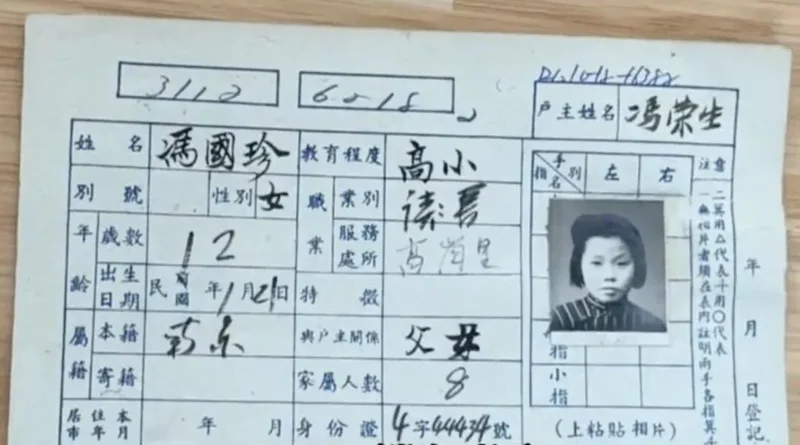 3112
D1.1012-16382
戶主姓名 馮榮生
姓名 馮國珍 教育程度 高小
別號 性別 女 職業 業別 讀書
年齡 歲數 12 服務處所
出生日期 民國前 年1月21日 特徵
屬籍 本籍 南京 與戶主關係 父女
寄籍 家屬人數 8
居住本市年月 年 月 身份證 4字44434號
指名 手別 左 右
指
小指
(上粘貼相片)
注意
二箕用△代表斗用〇代表
一無相片者須在表內註明兩手各指箕
年 月 日登記